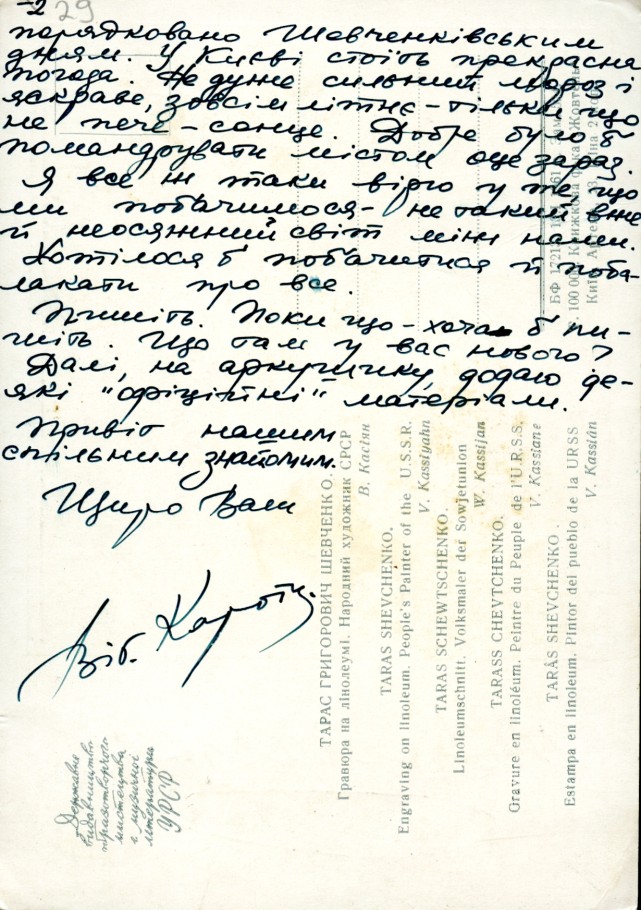 -2
29
порядковано Шевченківським
дням. У Києві стоїть прекрасна
погода. Не дуже сильний мороз і
яскраве, зовсім літнє – тільки що
не пече – сонце. Добре було б
помандрувати містом оце зараз.
Я все ж таки вірю у те, що
ми побачимося – не такий вже
й неосяжний світ між нами.
Хотілося б побачитися й поба-
лакати про все.
Пишіть. Поки що – хоча б пи-
шіть. Що там у вас нового?
Далі, на аркушику, додаю де-
які "офіційні" матеріали.
Привіт нашим
спільним знайомим.
Щиро Ваш
Віт. Коротич
ТАРАС ГРИГОРОВИЧ ШЕВЧЕНКО.
Гравюра на лінолеумі. Народний художник СРСР
В. Касіян
TARAS SHEVCHENKO.
Engraving on linoleum. People's Painter of the U.S.S.R.
V. Kassiyahn
TARAS SCHEWTSCHENKO.
Linoleumschnitt. Volksmaler der Sowjetunion
W. Kassijan
TARASS CHEVTCHENKO.
Gravure en linoléum. Peintre du Peuple de l'U.R.S.S.
V. Kassiane
TARÁS SHEVCHENKO.
Estampa en linoleum. Pintor del pueblo de la URSS
V. Kassián
Державне
видавництво
образотворчого
мистецтва
і музичної
літератури
УРСР